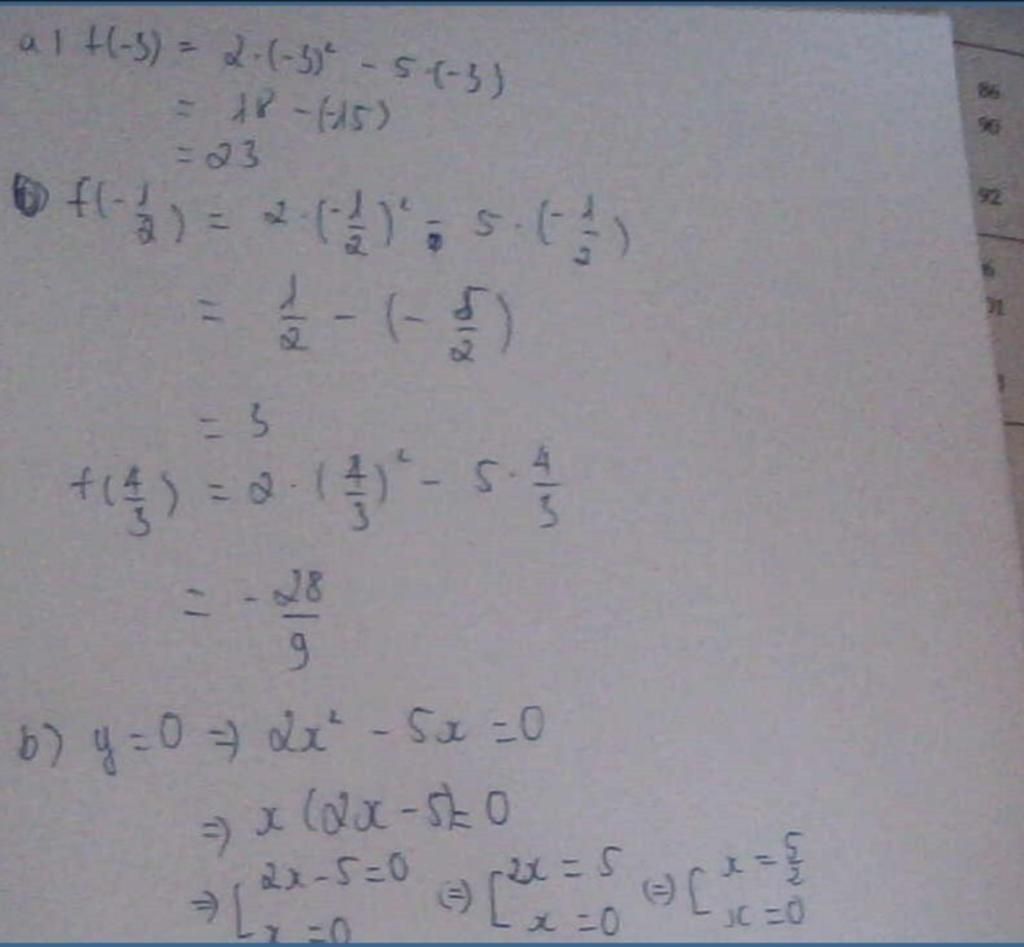 a) f(-3) = 2·(-3)² - 5·(-3)
= 18 - (-15)
= 23
b) f(-1/2) = 2·(-1/2)² - 5·(-1/2)
= 1/2 - (-5/2)
= 3
f(4/3) = 2·(4/3)² - 5·4/3
= -28/9
b) y=0 => 2x² - 5x = 0
=> x(2x-5)=0
=> [2x-5=0 (=) [2x=5 (=) [x=5/2
x=0 x=0 x=0
86
90
92
6
01